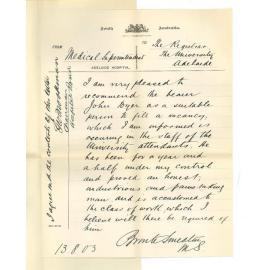 South Australia.
FROM
Medical Superintendent
ADELAIDE HOSPITAL
TO
The Registrar
The University
Adelaide
I am very pleased to
recommend the bearer
John Dyer as a suitable
person to fill a vacancy,
which I am informed is
occuring in the staff of the
University attendants. He
has been for a year and
a half under my control
and proved an honest,
industrious and painstaking
man and is accustomed to
the class of work, which I
believe will there be required of
him
Bronte Smeaton
M.S.
13.8.03